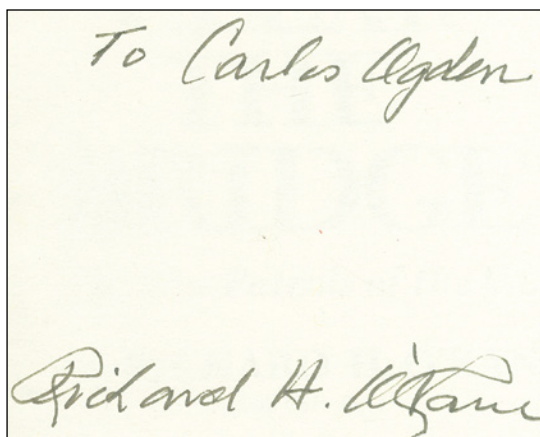 To Carlos Ogden
Richard H. O'Kane